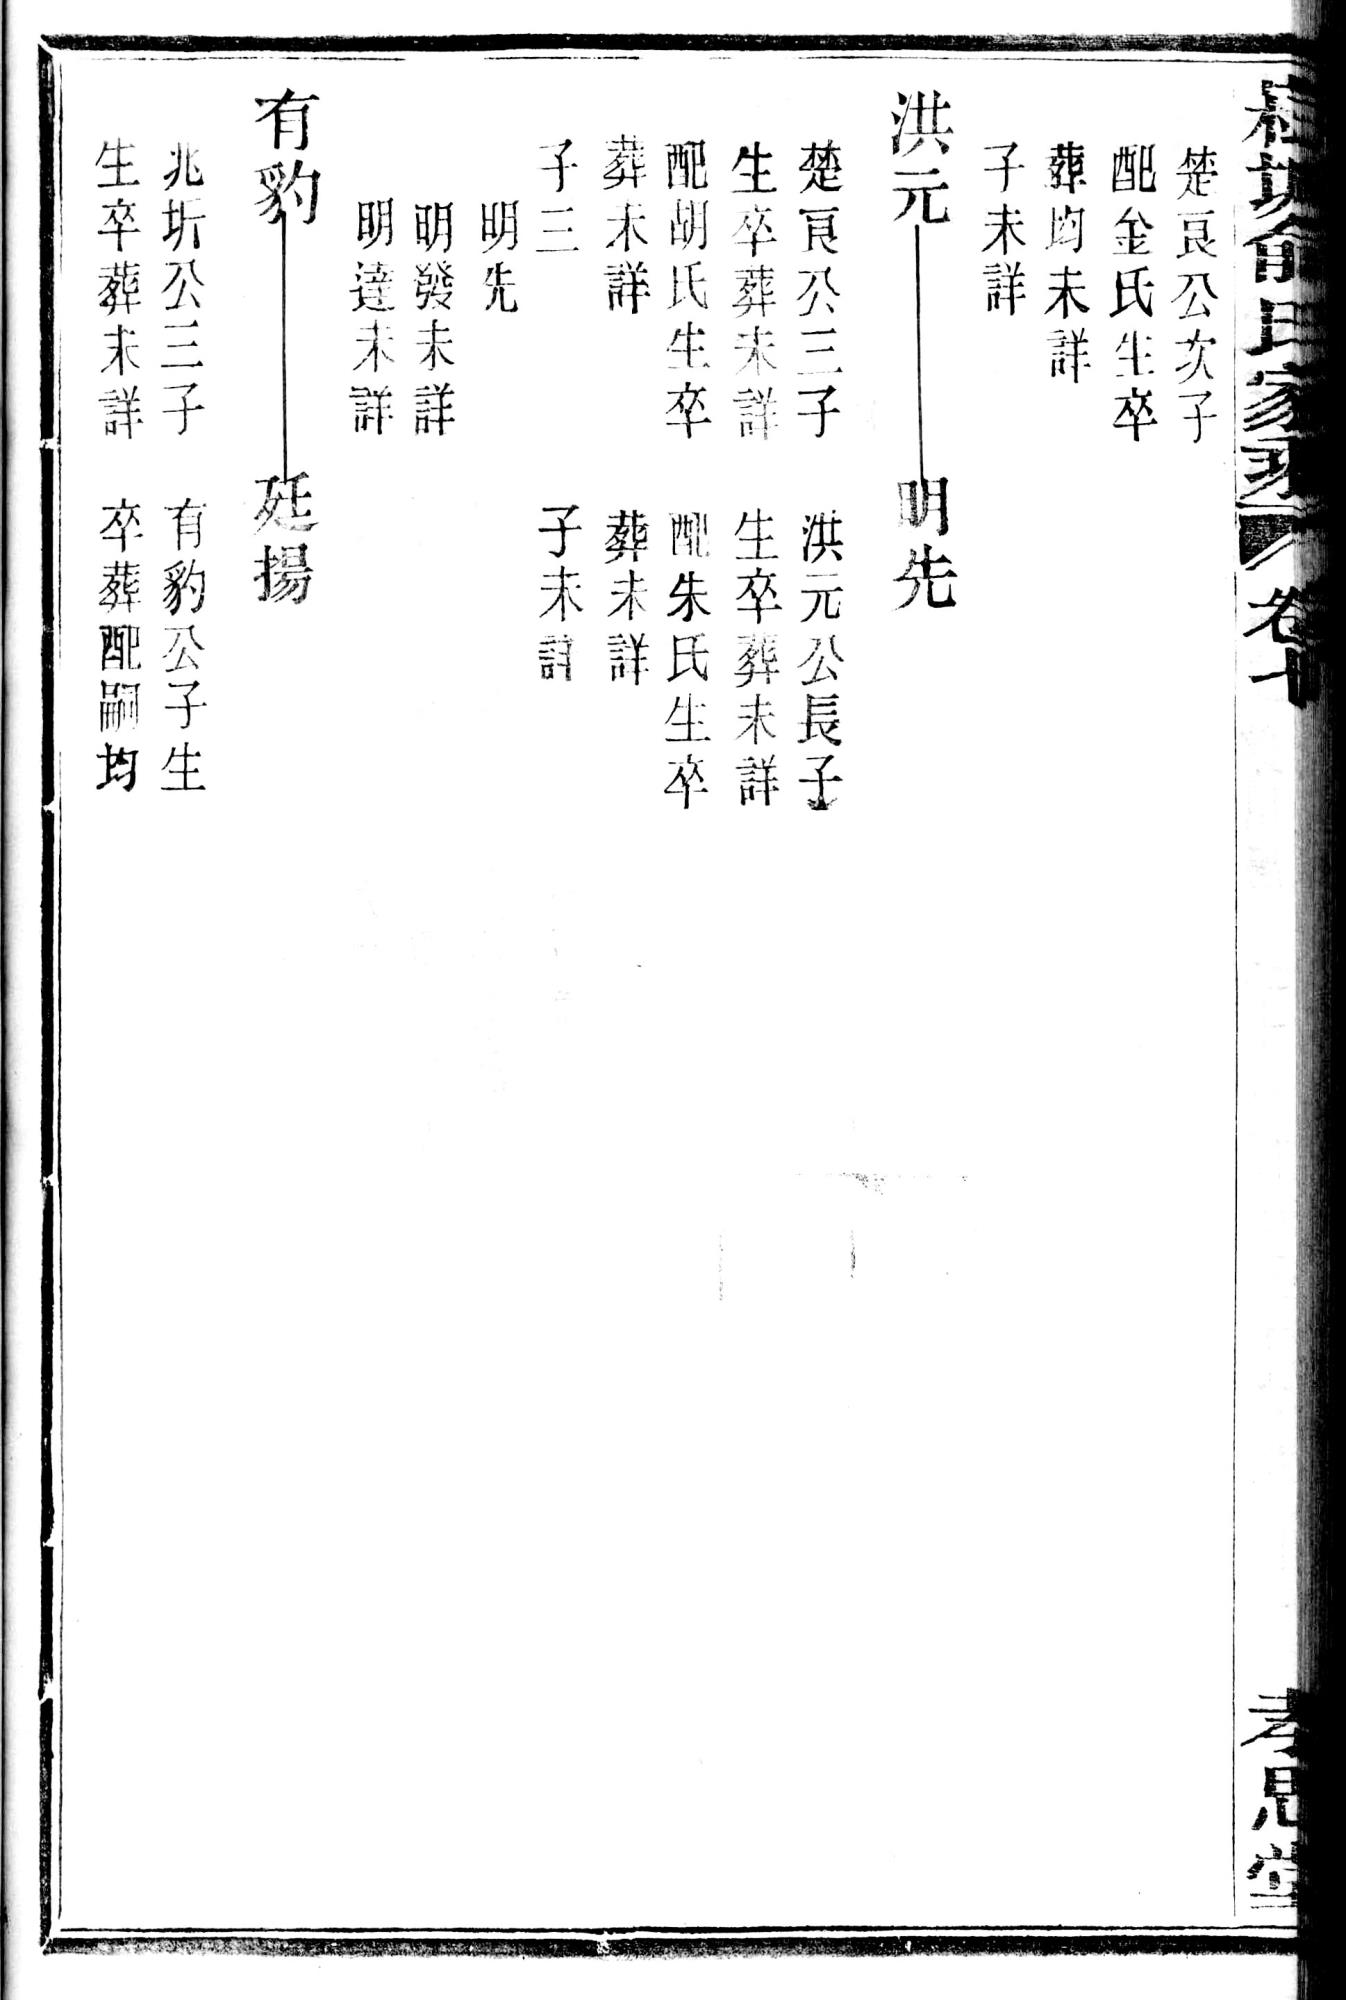 俞氏家乘 卷十
孝思堂
楚良公次子
配金氏生卒
葬均未詳
子未詳
洪元
楚良公三子
生卒葬未詳
配胡氏生卒
葬未詳
子三
明先
明發未詳
明達未詳
明先
洪元公長子
生卒葬未詳
配朱氏生卒
葬未詳
子未詳
有豹
兆圻公三子
生卒葬未詳
廷揚
有豹公子生
卒葬配嗣均